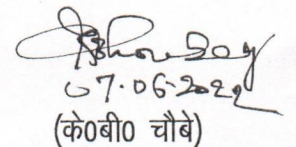 07.06.2022
(के०बी० चौबे)